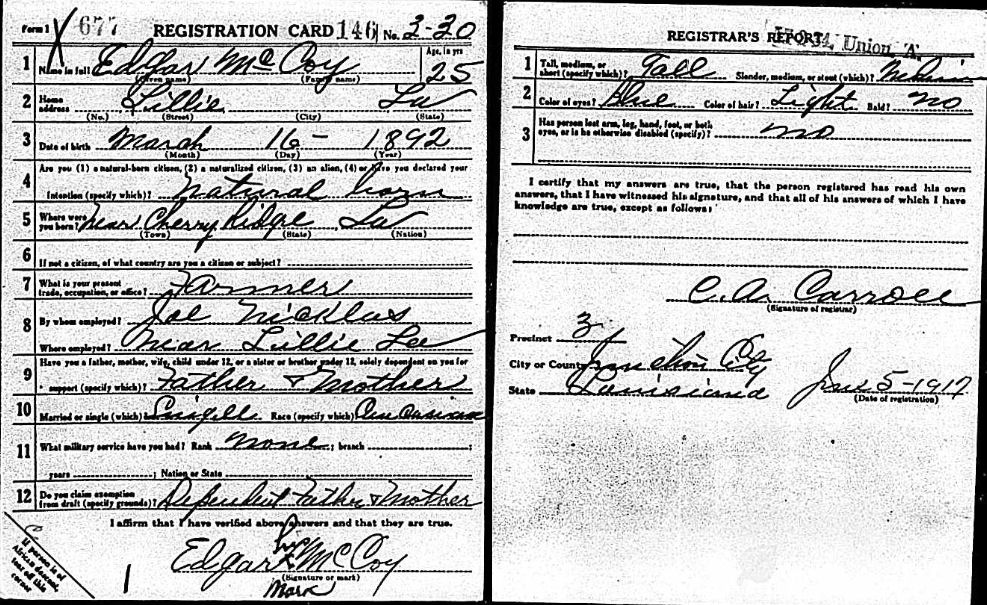 Form 1 677 REGISTRATION CARD 146 No. 2-20
1 Name in full Edgar McCoy Age, in yrs 25
(Given name) (Family name)
2 Home address Lillie La
(No.) (Street) (City) (State)
3 Date of birth March 16 - 1892
(Month) (Day) (Year)
4 Are you (1) a natural-born citizen, (2) a naturalized citizen, (3) an alien, (4) or have you declared your
intention (specify which)? natural born
5 Where were you born? near Cherry Ridge La
(Town) (State) (Nation)
6 If not a citizen, of what country are you a citizen or subject?
7 What is your present trade, occupation, or office? Farmer
8 By whom employed? Joe Nicklus
Where employed? near Lillie La
9 Have you a father, mother, wife, child under 12, or a sister or brother under 12, solely dependent on you for
support (specify which)? Father & Mother
10 Married or single (which)? Single Race (specify which)? Caucasian
11 What military service have you had? Rank none ; branch ;
years ; Nation or State
12 Do you claim exemption from draft (specify grounds)? Dependent Father & Mother
I affirm that I have verified above answers and that they are true.
his
Edgar X McCoy
(Signature or mark)
mark
If person is of African descent, tear off this corner
REGISTRAR'S REPORT Union "A"
1 Tall, medium, or short (specify which)? Tall Slender, medium, or stout (which)? Medium
2 Color of eyes? Blue Color of hair? Light Bald? no
3 Has person lost arm, leg, hand, foot, or both eyes, or is he otherwise disabled (specify)? no
I certify that my answers are true, that the person registered has read his own
answers, that I have witnessed his signature, and that all of his answers of which I have
knowledge are true, except as follows:
C. A. Carroll
(Signature of registrar)
Precinct 3
City or County
State Louisiana 5-1917
(Date of registration)